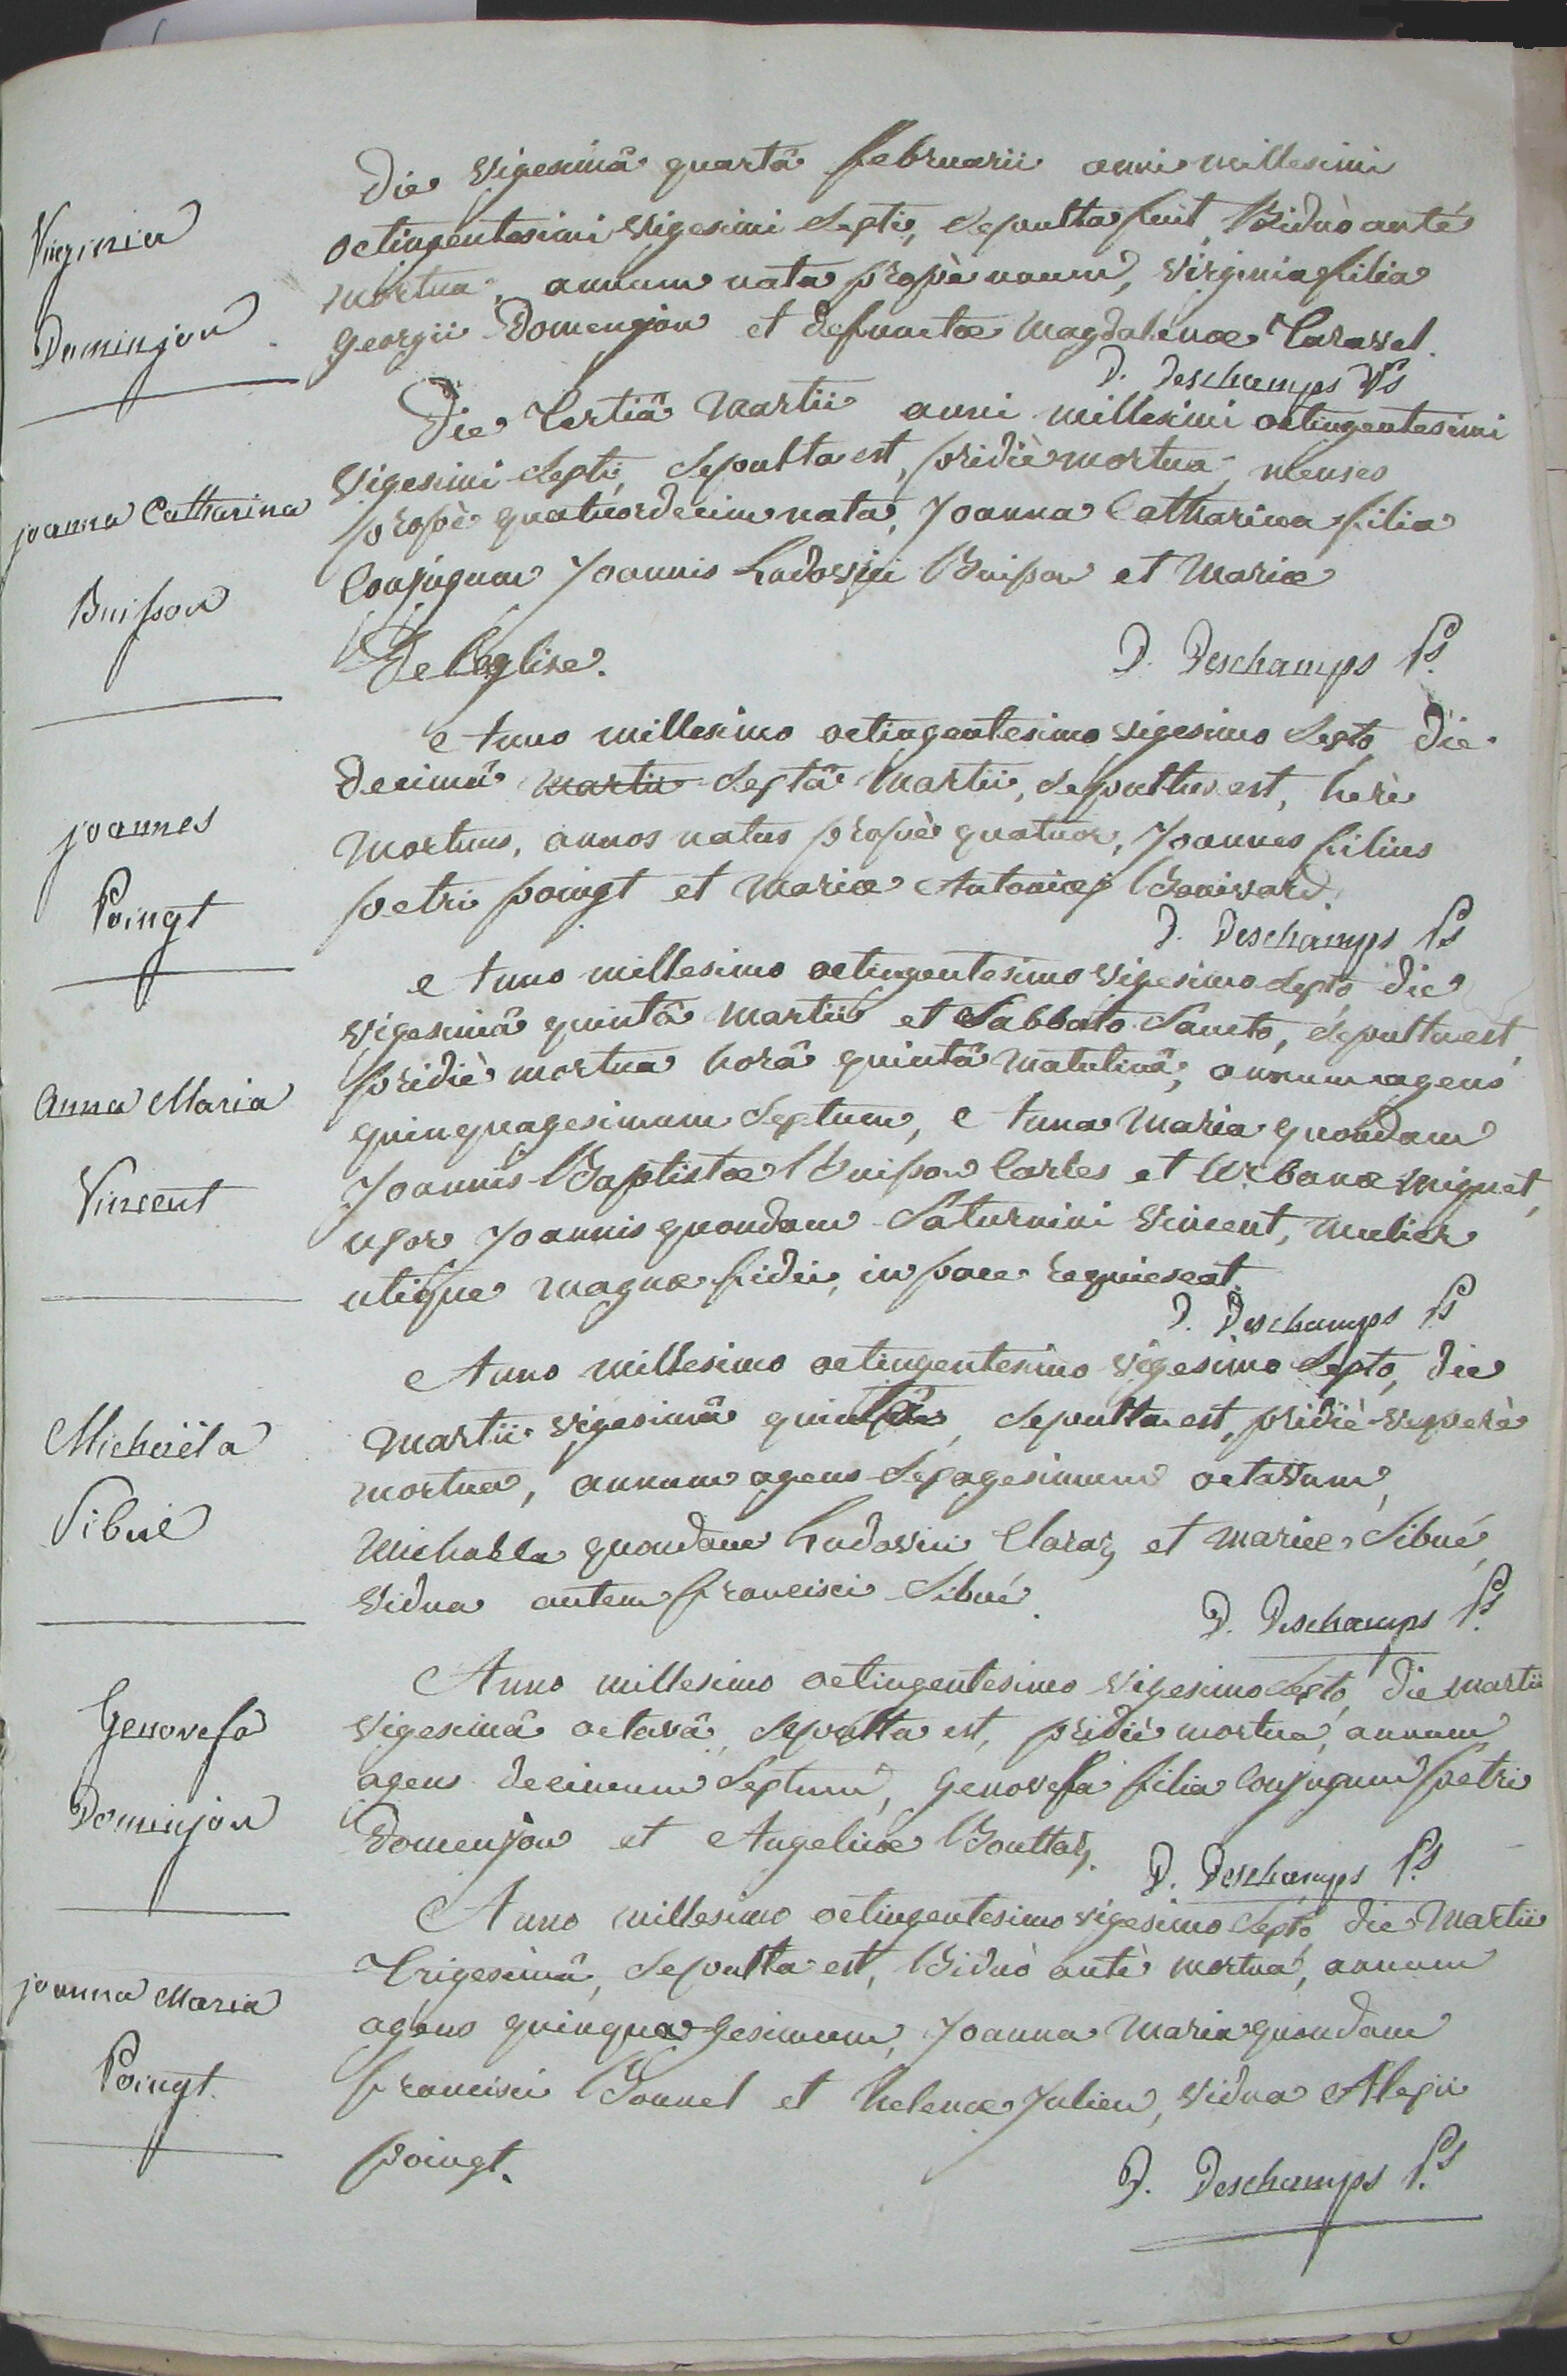 Virginia
Dominjon
Die vigesimâ quartâ februarii anni millesimi
octingentesimi vigesimi Sexti, Sepulta fuit, Biduò antè
mortua, annum nata propè unum, virginia filia
georgii Domenjon et defunctæ Magdalenæ Caravel.
D. Deschamps Ps
joanna Catharina
Buisson
Die Tertiâ Martii anni millesimi octingentesimi
vigesimi Sexti, Sepulta est, pridiè mortua, menses
propè quatuordecim nata, Joanna Catharina filia
Conjugum Joannis Ludovici Buisson et Mariæ
De l'eglise.
D. Deschamps Ps.
joannes
Poingt
Anno millesimo octingentesimo vigesimo Sexto, Die
Decimâ martii Sextâ Martii, Sepultus est, herè
Mortuus, annos natus propè quatuor, Joannes filius
petri poingt et Mariæ Antoniæ Bonivard.
D. Deschamps Ps
Anna Maria
Vincent
Anno millesimo octingentesimo vigesimo Sexto, Die
vigesimâ quintâ Martii et Sabbato Sancto, Sepulta est,
pridiè mortua horâ quintâ Matutinâ, annum agens
quinquagesimum Sextum, Anna Maria quondam
Joannis Baptistæ Buisson Carles et Urbanæ Miquet,
uxor Joannis quondam Saturnini Vincent, Mulier
utique magnæ fidei, in pace requiescat.
D. Deschamps Ps
Michaëla
Sibué
Anno millesimo octingentesimo vigesimo Sexto, Die
Martii vigesimâ quintâ, Sepulta est, pridiè vesperè
mortua, annum agens Sexagesimum octavum,
Michaëla quondam Ludovici Claraz et Mariæ Sibué,
vidua autem francisci Sibué.
D. Deschamps Ps.
Genovefa
Dominjon
Anno millesimo octingentesimo vigesimo Sexto, Die Martii
vigesimâ octavâ, Sepulta est, pridiè mortua, annum
agens decimum Sextum, genovefa filia Conjugum petri
Domenjon et Angelicæ Bouttaz.
D. Deschamps Ps.
joanna Maria
Poingt.
Anno millesimo octingentesimo vigesimo Sexto, die Martii
Trigesimâ, Sepulta est, Biduò antè mortua, annum
agens quinquagesimum, Joanna Maria quondam
francisci Bonnel et helenæ Julien, vidua Alexii
poingt.
D. Deschamps Ps.